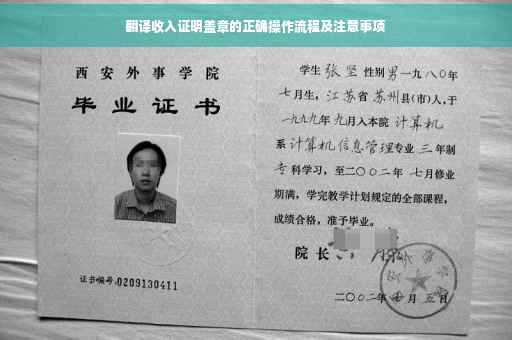 翻译收入证明盖章的正确操作流程及注意事项
西安外事学院
毕业证书
证书编号:0209130411
学生 张坚 性别 男 一九八〇年
七月生, 江苏省 苏州县(市)人,于
一九九九年 九月入本院 计算机
系 计算机信息管理专业 三 年制
专 科学习,至二〇〇二年 七月修业
期满,学完教学计划规定的全部课程,
成绩合格,准予毕业。
院长
二〇〇二年 月 五日